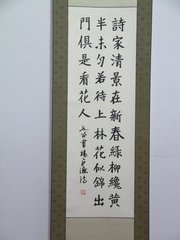 詩家清景在新春綠柳纔黃
半未勻若待上林花似錦出
門俱是看花人